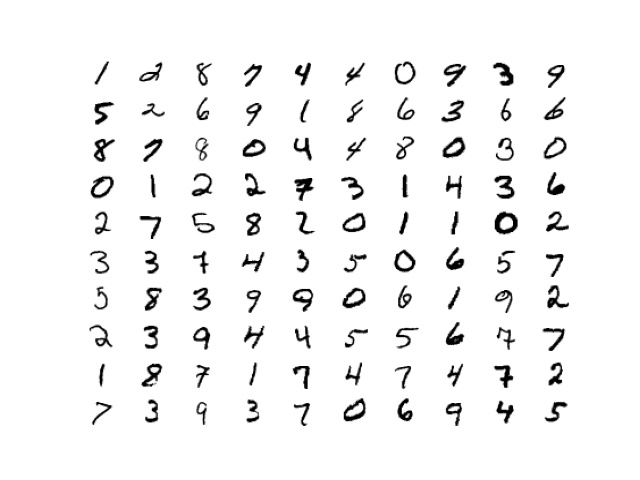 1 2 8 7 4 4 0 9 3 9
5 2 6 9 1 8 6 3 6 6
8 7 8 0 4 4 8 0 3 0
0 1 2 2 7 3 1 4 3 6
2 7 5 8 2 0 1 1 0 2
3 3 7 4 3 5 0 6 5 7
5 8 3 9 9 0 6 1 9 2
2 3 9 4 4 5 5 6 7 7
1 8 7 1 7 4 7 4 7 2
7 3 9 3 7 0 6 9 4 5